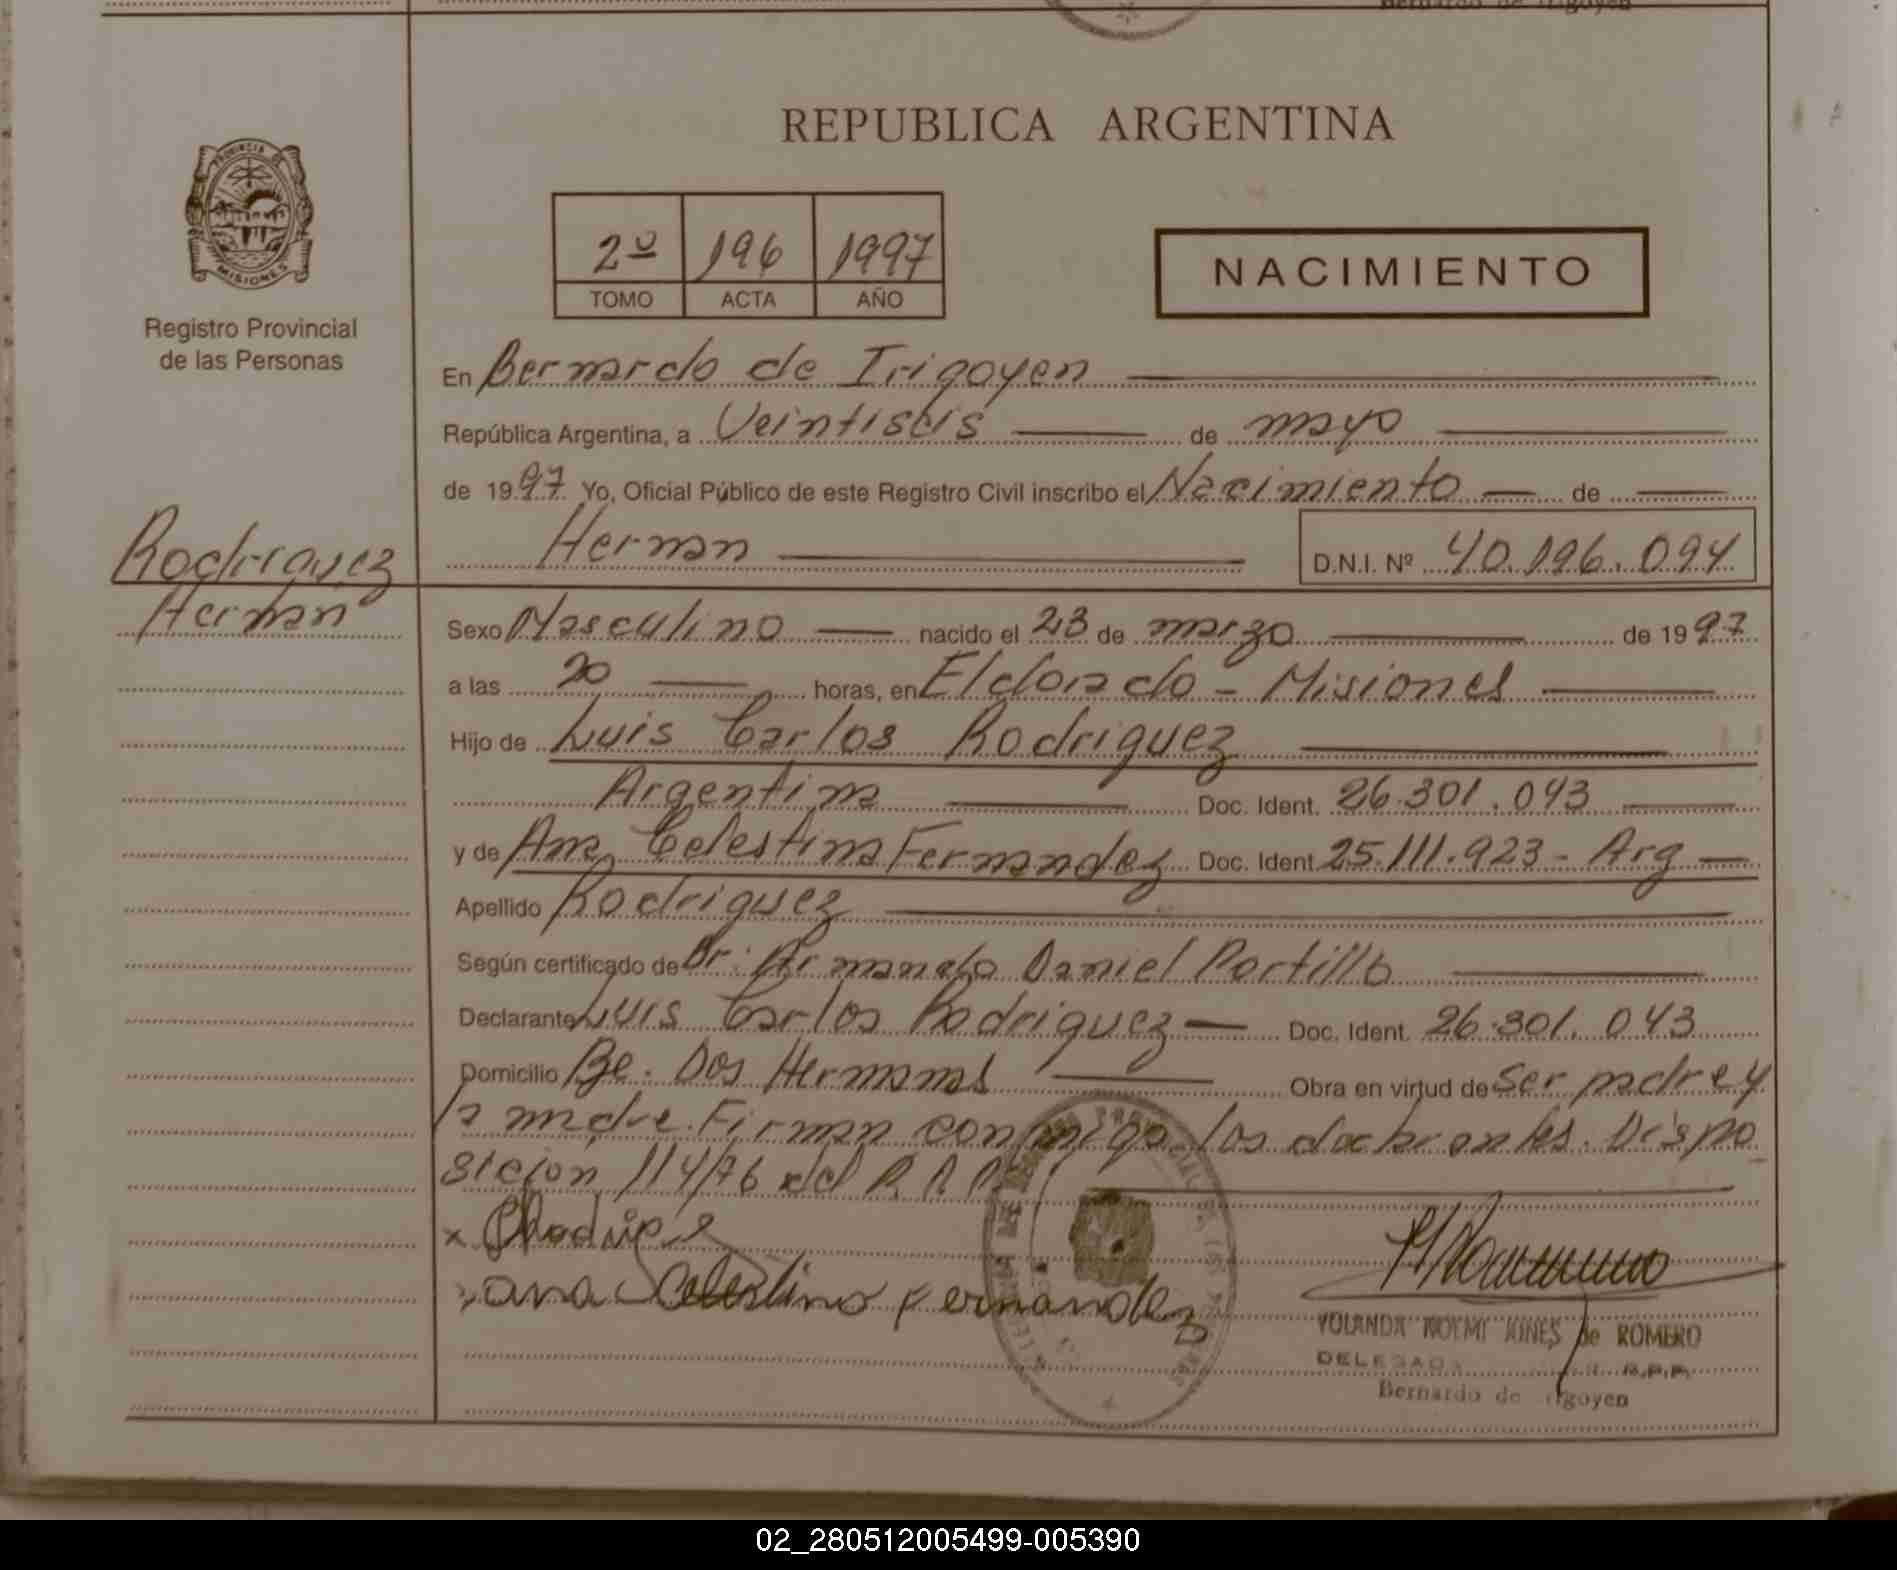 Bernardo de Irigoyen
REPUBLICA ARGENTINA
PROVINCIA DE
MISIONES
Registro Provincial
de las Personas
2º 196 1997
TOMO ACTA AÑO
NACIMIENTO
En Bernardo de Irigoyen
República Argentina, a Veintiseis de mayo
de 1997 Yo, Oficial Público de este Registro Civil inscribo el Nacimiento de
Hernan D.N.I. Nº 40.196.094
Rodriguez
Hernan
Sexo Masculino nacido el 23 de marzo de 1997
a las 20 horas, en Eldorado - Misiones
Hijo de Luis Carlos Rodriguez
Argentina Doc. Ident. 26.301.043
y de Ana Celestina Fernandez Doc. Ident 25.111.923 - Arg
Apellido Rodriguez
Según certificado de Dr. Armando Daniel Portillo
Declarante Luis Carlos Rodriguez Doc. Ident. 26.301.043
Domicilio Be. Dos Hermanas Obra en virtud de Ser padre y
la madre. Firman conmigo los declarantes. Dispo
sicion 114/76 del R.P.P.
x
x ana Celestina Fernandez
YOLANDA NOEMI de ROMERO
DELEGADA R.P.P.
Bernardo de Irigoyen
02_280512005499-005390